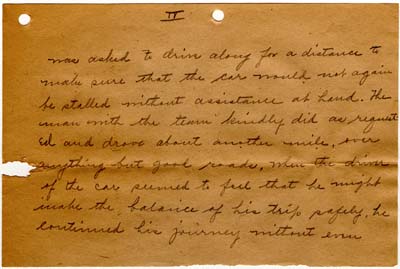 II
was asked to drive along for a distance to
make sure that the car would not again
be stalled without assistance at hand. The
man with the team kindly did as request
ed and drove about another mile, over
anything but good roads, when the driver
of the car seemed to feel that he might
make the balance of his trip safely, he
continued his journey without even